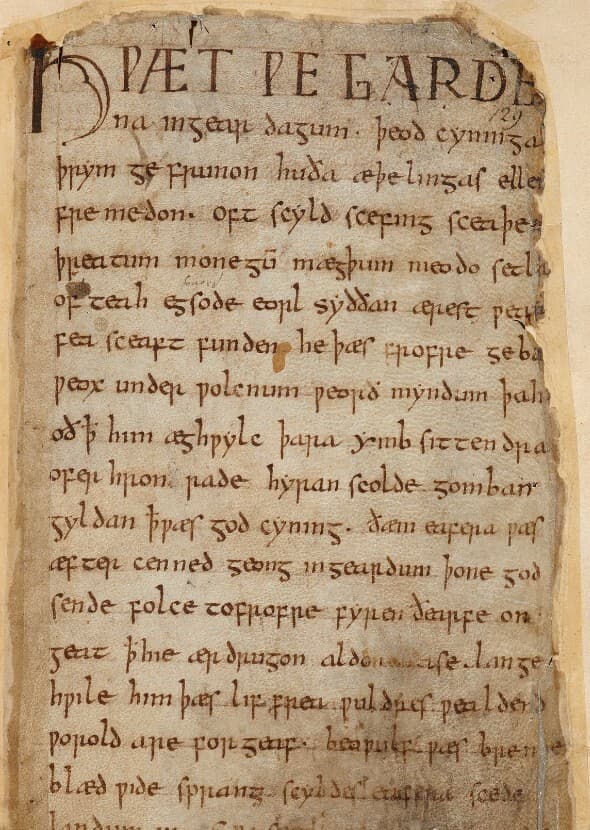 HǷÆT ǷE GARDE
na ingear dagum. þeod cyninga
þrym ge frunon huða æþelingas elle
fremedon. oft scyld scefing sceaþe
þreatum monegū mægþum meodo setla
of teah egsode eorl syððan ærest ƿea
fea sceaft funden he þæs frofre geba
ƿeox under ƿolcnum ƿeorð myndum þah
oðꝥ him æghƿylc þara ymb sittendra
ofer hron rade hyran scolde gomban
gyldan ꝥƿæs god cyning. ðæm eafera ƿæs
æfter cenned geong ingeardum þone god
sende folce tofrofre fyren ðearfe on
geat ꝥhie ær drugon aldor ase. lange
hƿile him þæs lif frea ƿuldres ƿealdend
ƿorold are for geaf. beoƿulf ƿæs breme
blæd ƿide sprang scyldes eafera scede
landum in